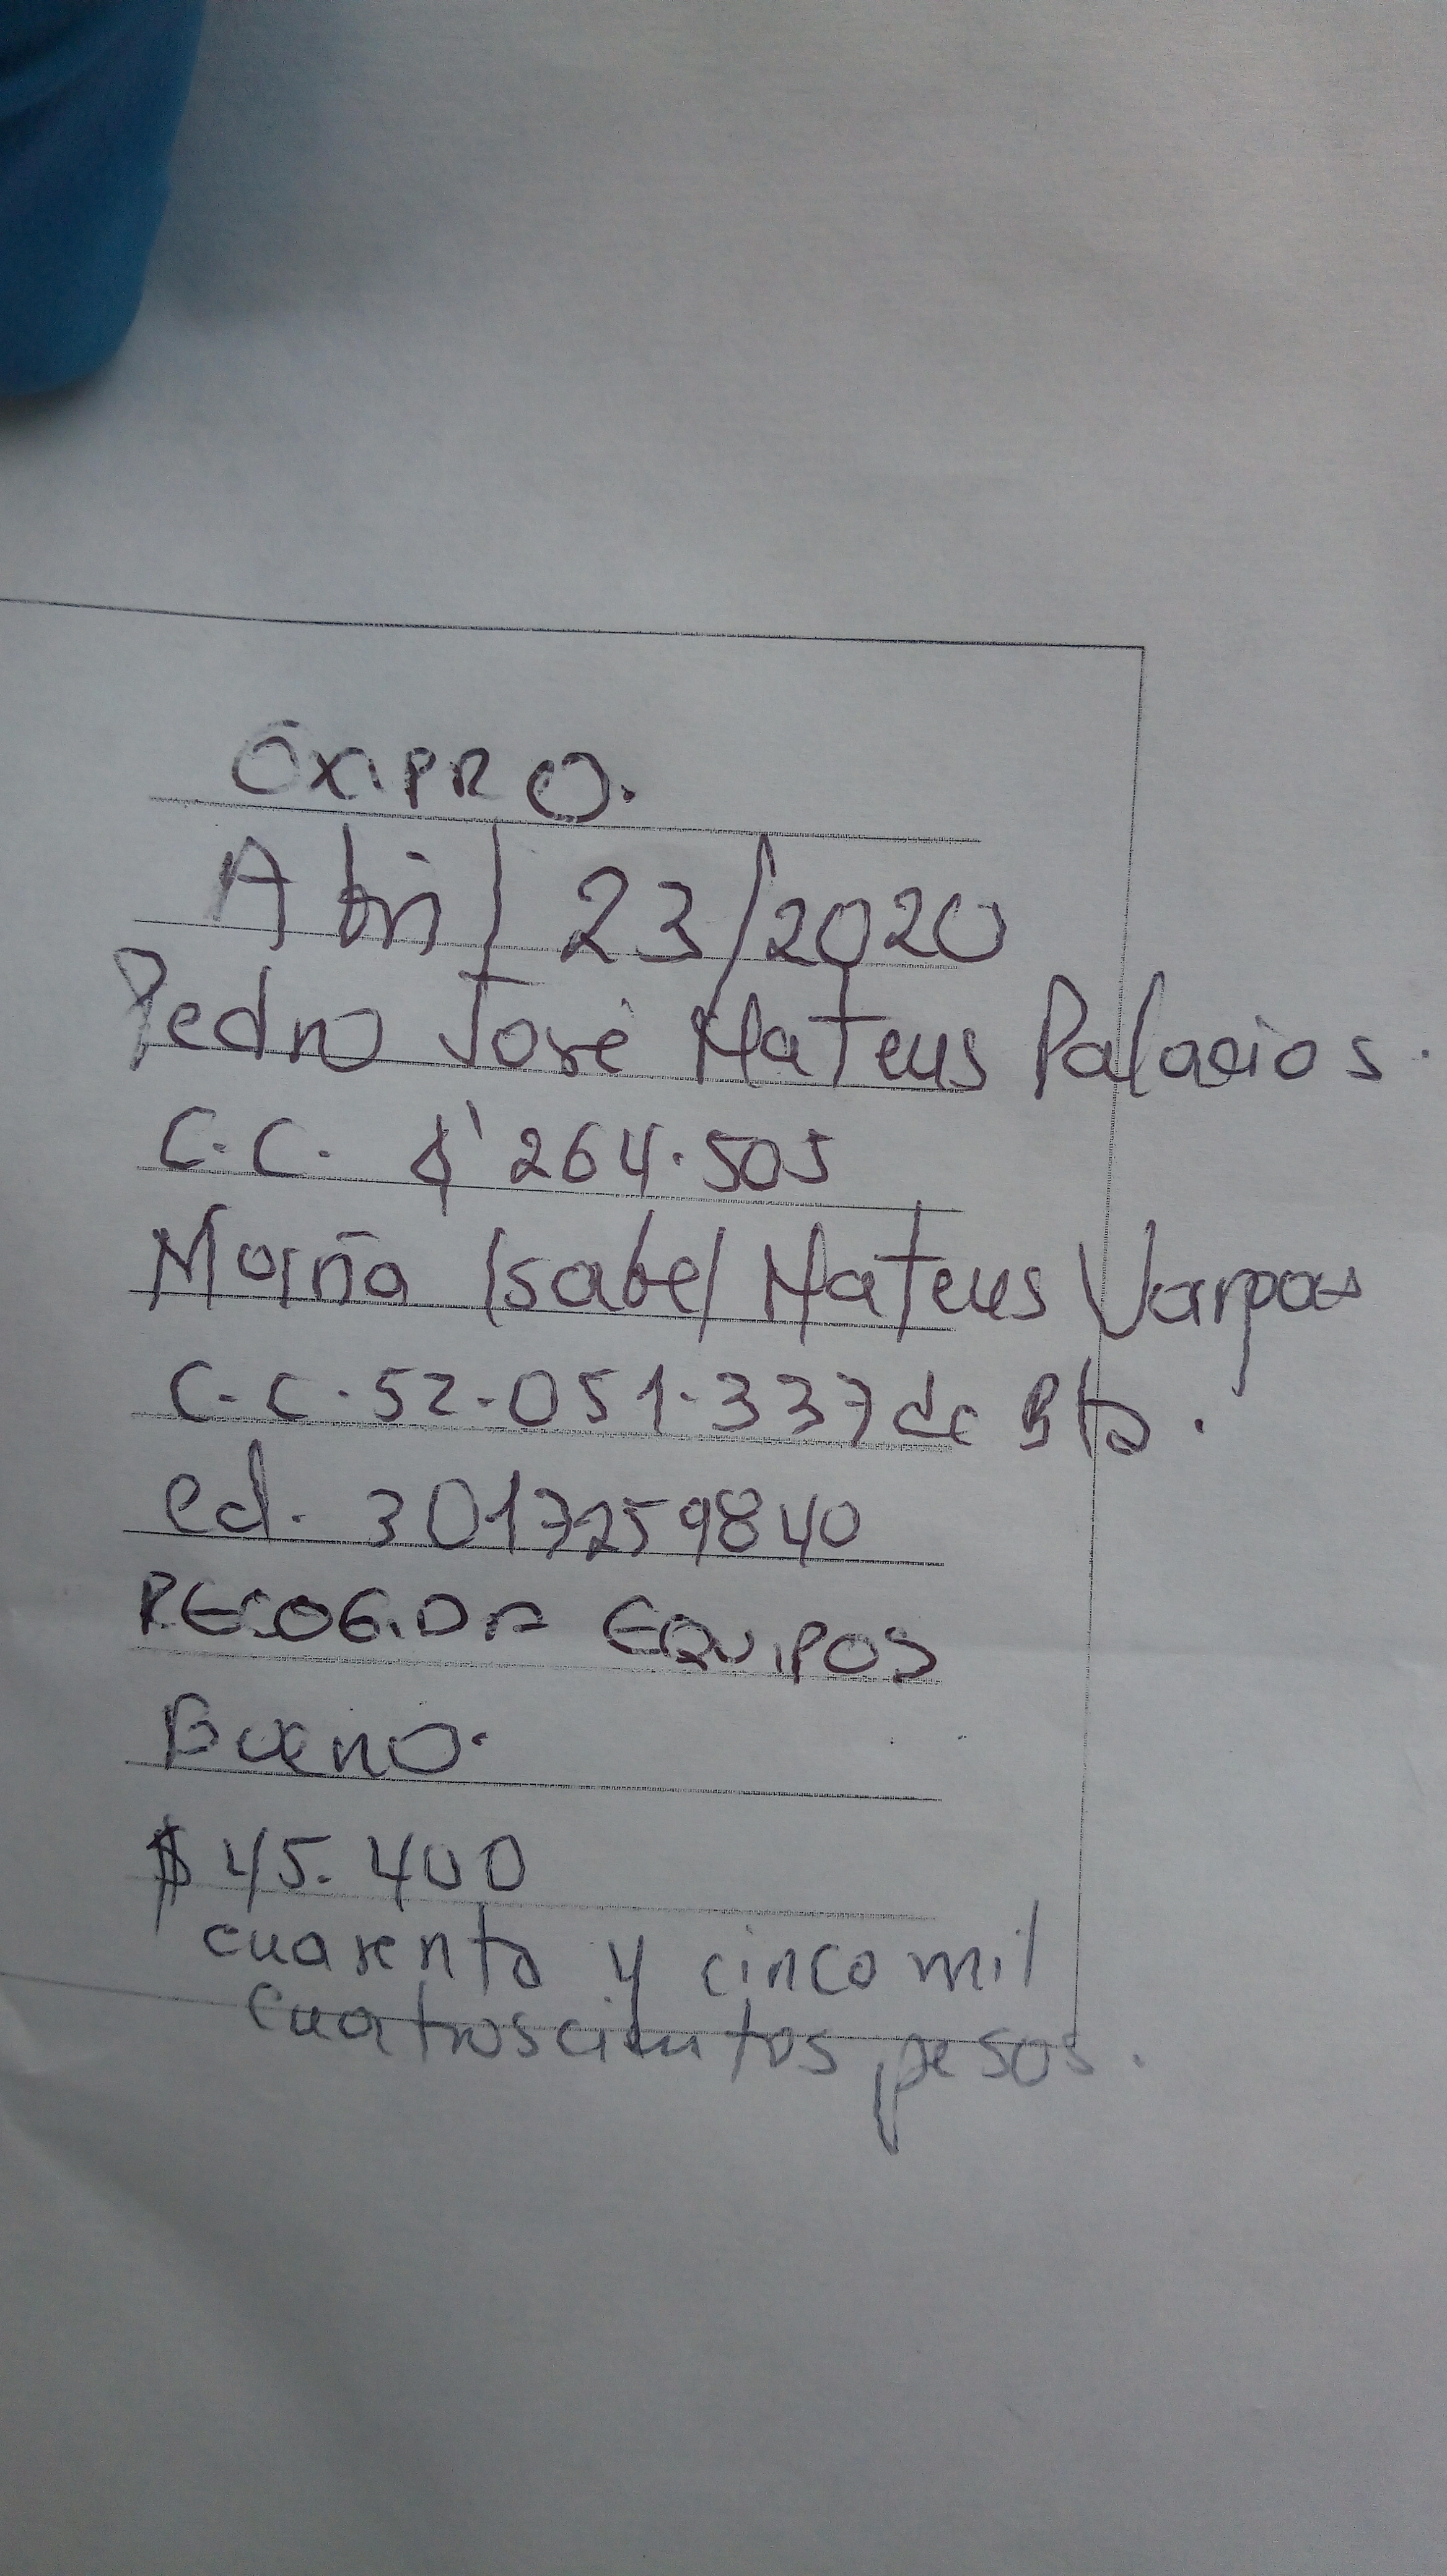 OXIPRO.
Abril 23/2020
Pedro José Mateus Palacios.
C.C. 264.505
María Isabel Mateus Vargas
C.C. 52.051.337 de Bta.
cel. 3017259840
RECOGIDA EQUIPOS
Bueno.
$ 45.400
cuarenta y cinco mil
cuatroscientos pesos.